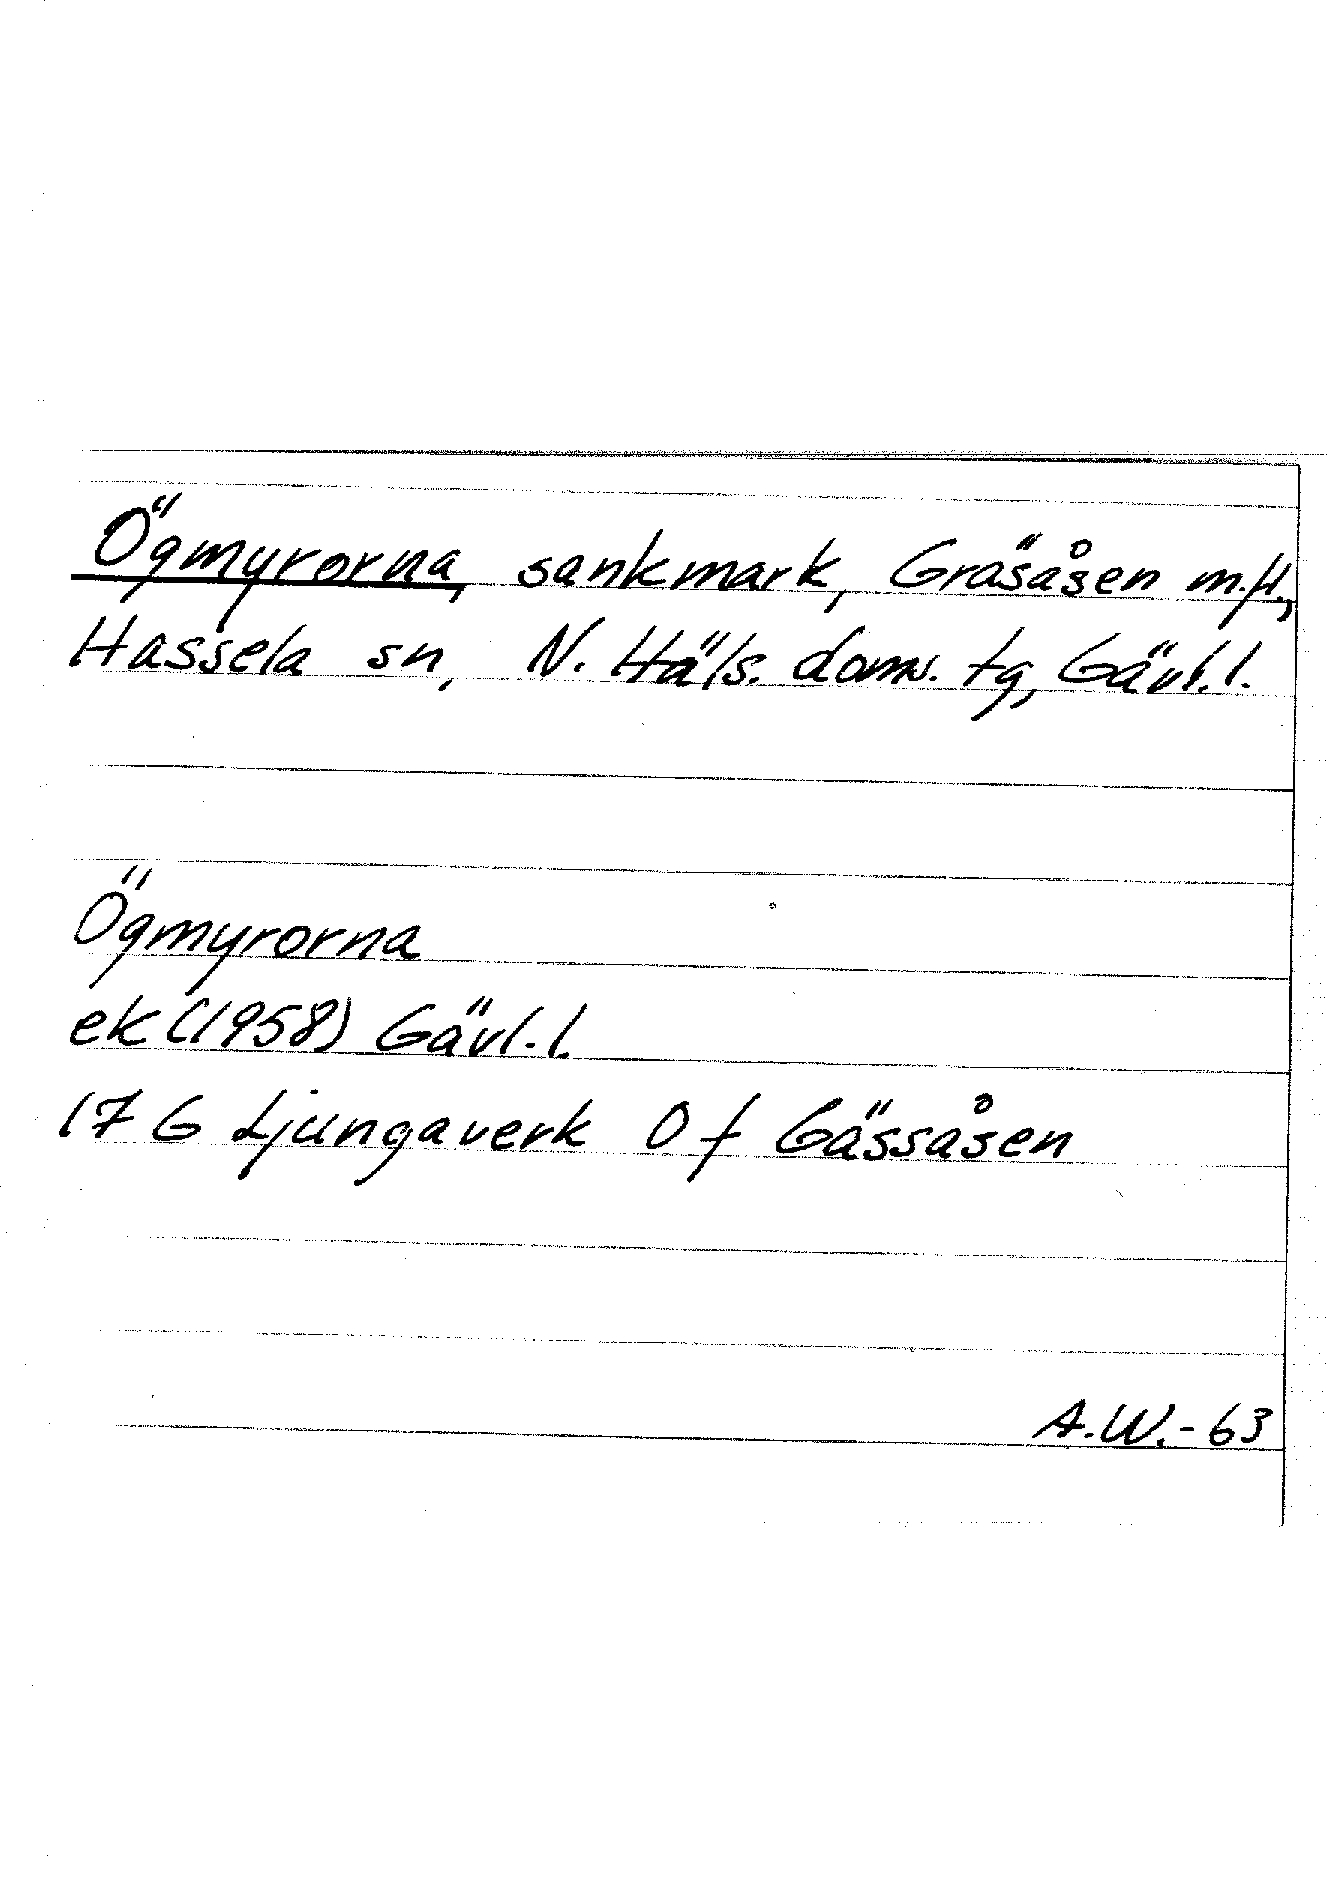 Ögmyrorna, sankmark, Gräsåsen m.fl.,
Hassela sn, N. Häls. doms. tg, Gävl.l.
Ögmyrorna
ek (1958) Gävl.l.
17 G Ljungaverk O f Gässåsen
A.W.-63